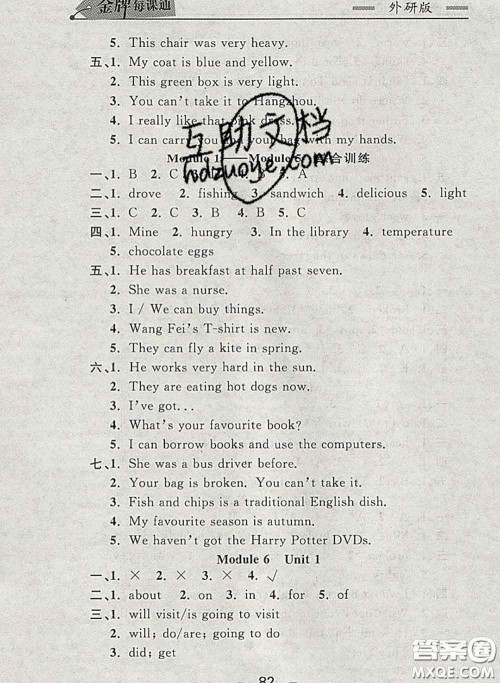 金牌每课通 外研版
5. This chair was very heavy.
五、1. My coat is blue and yellow.
2. This green box is very light.
3. You can't take it to Hangzhou.
4. I really like that pink dress.
5. I can carry your bag with my hands.
互助文档
hdzuoye.com
Module 1——Module 5 综合训练
一、1. B 2. C 5. A
二、1. drove 2. fishing 3. sandwich 4. delicious 5. light
三、1. C 2. C 3. B 4. B 5. C
四、1. Mine 2. hungry 3. In the library 4. temperature
5. chocolate eggs
五、1. He has breakfast at half past seven.
2. She was a nurse.
3. I / We can buy things.
4. Wang Fei's T-shirt is new.
5. They can fly a kite in spring.
六、1. He works very hard in the sun.
2. They are eating hot dogs now.
3. I've got...
4. What's your favourite book?
5. I can borrow books and use the computers.
七、1. She was a bus driver before.
2. Your bag is broken. You can't use it.
3. Fish and chips is a traditional English dish.
4. My favourite season is autumn.
5. We haven't got the Harry Potter DVDs.
Module 6 Unit 1
一、1. × 2. × 3. × 4. √
二、1. about 2. on 3. at 4. for 5. of
三、1. will visit/is going to visit
2. will; do/are; going to do
3. did; get
82
答案圈
MXQE.COM